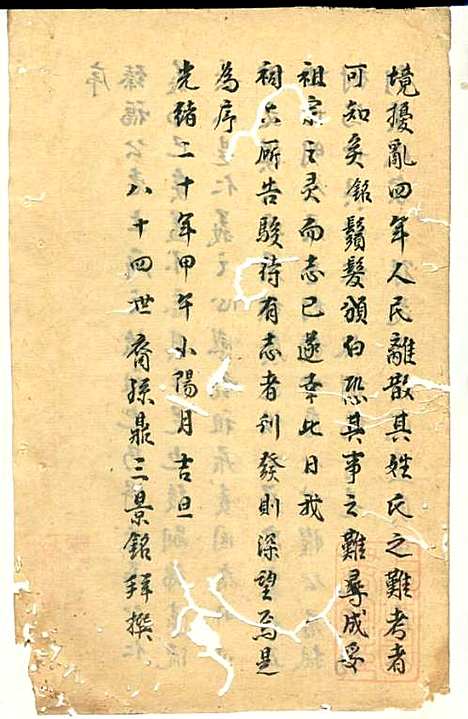 境擾亂四年人民離散其姓氏之難考者
可知矣銘鬚髮頒白恐其事之難尋成妥
祖宗之灵而志已遂幸此日我
祠之所告駿待有志者刊發則深望焉是
為序
光緒二十年甲午小陽月吉旦
八十四世裔孫鼎三景銘拜撰